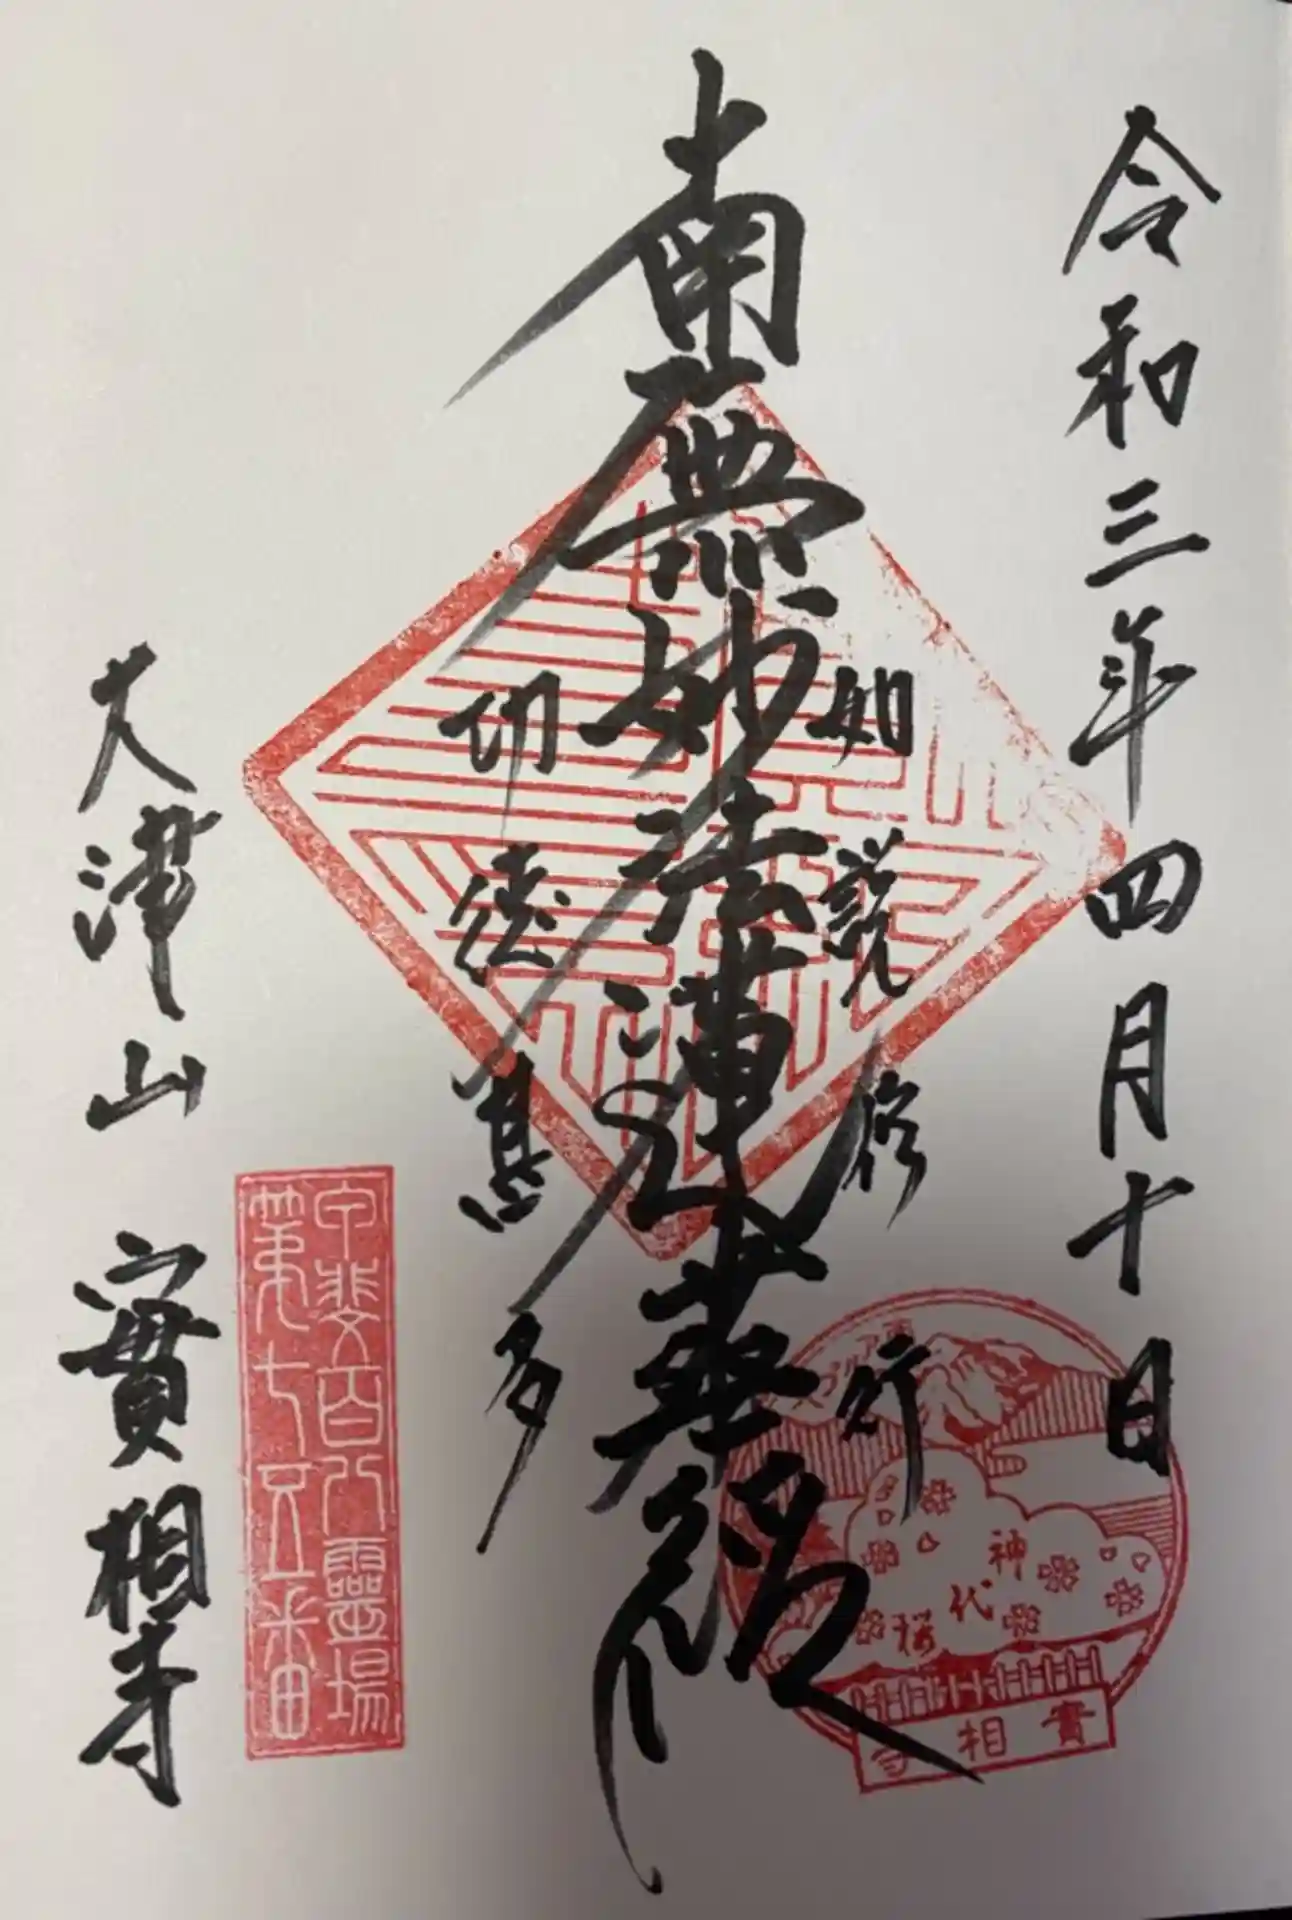 令和三年四月十日
如説修行
南無妙法蓮華経
功徳甚多
大津山 實相寺
甲斐百八霊場
第七五番
南アルプス
神代桜
實相寺